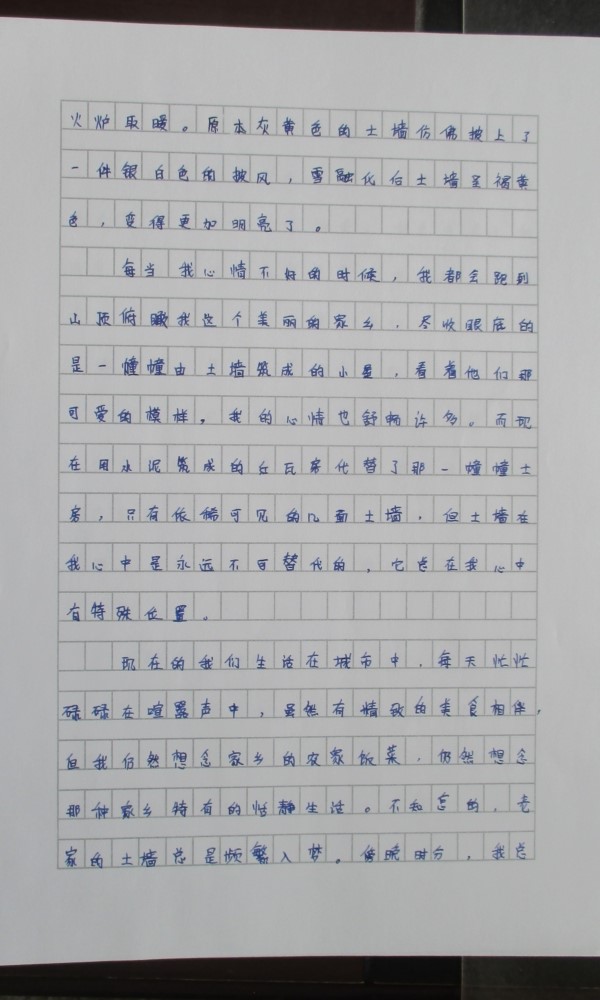 火炉取暖。原本灰黄色的土墙仿佛披上了
一件银白色的披风，雪融化后土墙呈褐黄
色，变得更加明亮了。
每当我心情不好的时候，我都会跑到
山顶俯瞰我这个美丽的家乡，尽收眼底的
是一幢幢由土墙筑成的小屋，看着他们那
可爱的模样，我的心情也舒畅许多。而现
在用水泥筑成的丘瓦房代替了那一幢幢土
房，只有依稀可见的几面土墙，但土墙在
我心中是永远不可替代的，它总在我心中
有特殊位置。
现在的我们生活在城市中，每天忙忙
碌碌在喧嚣声中，虽然有情致的美食相伴，
但我仍然想念家乡的农家饭菜，仍然想念
那种家乡特有的恬静生活。不知怎的，老
家的土墙总是频繁入梦。傍晚时分，我总